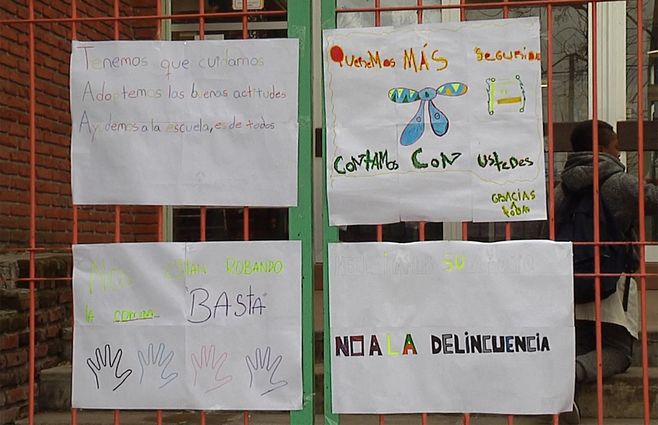 Tenemos que cuidarnos
Adoptemos las buenas actitudes
Ayudemos a la escuela, es de todos
Queremos MÁS Seguridad
CONTAMOS CON USTEDES
GRACIAS
A
TODOS
NOS ESTAN ROBANDO
la comida BASTA
NECESITAMOS SU APOYO
NO A LA DELINCUENCIA